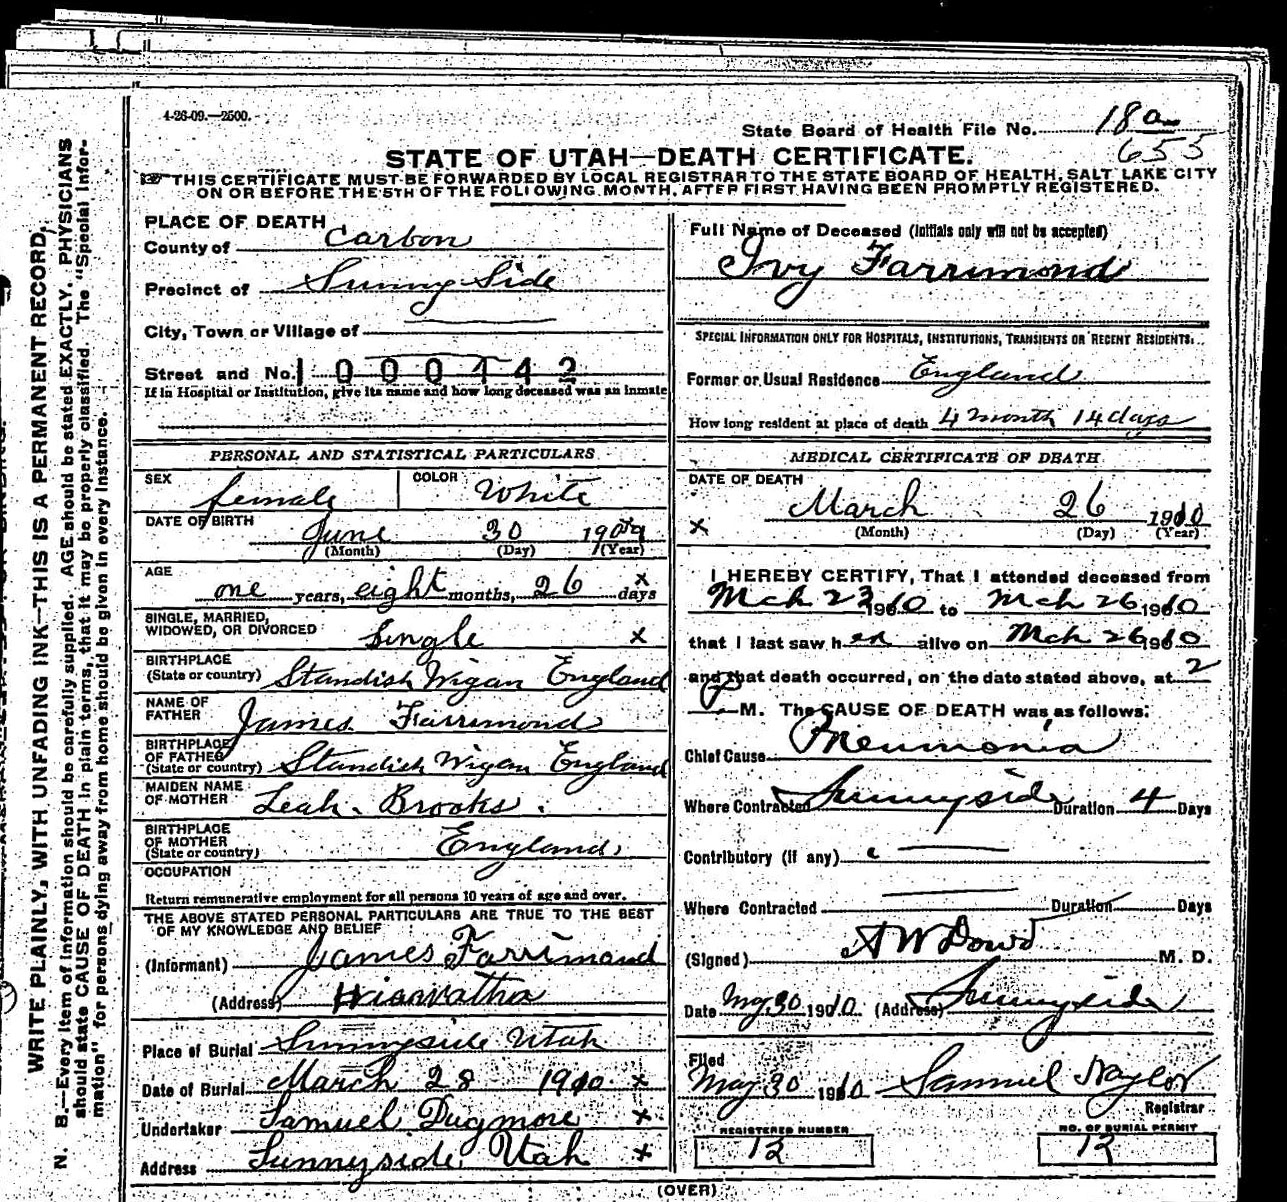 4-26-09.—2500.
State Board of Health File No. 18a
655
STATE OF UTAH—DEATH CERTIFICATE.
THIS CERTIFICATE MUST BE FORWARDED BY LOCAL REGISTRAR TO THE STATE BOARD OF HEALTH, SALT LAKE CITY
ON OR BEFORE THE 5TH OF THE FOLLOWING MONTH, AFTER FIRST HAVING BEEN PROMPTLY REGISTERED.
WRITE PLAINLY, WITH UNFADING INK—THIS IS A PERMANENT RECORD.
N. B.—Every item of information should be carefully supplied. AGE should be stated EXACTLY. PHYSICIANS
should state CAUSE OF DEATH in plain terms, that it may be properly classified. The "Special Infor-
mation" for persons dying away from home should be given in every instance.
PLACE OF DEATH
County of Carbon
Precinct of Sunny Side
City, Town or Village of
Street and No. 1000442
If in Hospital or Institution, give its name and how long deceased was an inmate
PERSONAL AND STATISTICAL PARTICULARS
SEX female COLOR White
DATE OF BIRTH June 30 1909
(Month) (Day) (Year)
AGE one years, eight months, 26 days x
SINGLE, MARRIED,
WIDOWED, OR DIVORCED Single x
BIRTHPLACE
(State or country) Standish Wigan England
NAME OF
FATHER James Farrimond
BIRTHPLACE
OF FATHER
(State or country) Standish Wigan England
MAIDEN NAME
OF MOTHER Leah Brooks.
BIRTHPLACE
OF MOTHER
(State or country) England
OCCUPATION
Return remunerative employment for all persons 10 years of age and over.
THE ABOVE STATED PERSONAL PARTICULARS ARE TRUE TO THE BEST
OF MY KNOWLEDGE AND BELIEF
(Informant) James Farrimond
(Address) Hiawatha
Place of Burial Sunnyside Utah
Date of Burial March 28 1910 x
Undertaker Samuel Dugmore x
Address Sunnyside Utah x
Full Name of Deceased (Initials only will not be accepted)
Ivy Farrimond
SPECIAL INFORMATION ONLY FOR HOSPITALS, INSTITUTIONS, TRANSIENTS OR RECENT RESIDENTS.
Former or Usual Residence England
How long resident at place of death 4 month 14 days
MEDICAL CERTIFICATE OF DEATH
DATE OF DEATH
x March 26 1910
(Month) (Day) (Year)
I HEREBY CERTIFY, That I attended deceased from
Mch 23 1910 to Mch 26 1910
that I last saw her alive on Mch 26 1910
and that death occurred, on the date stated above, at 2
P M. The CAUSE OF DEATH was as follows:
Chief Cause Pneumonia
Where Contracted Sunnyside Duration 4 Days
Contributory (if any)
Where Contracted Duration Days
(Signed) A W Dowd M. D.
Date May 30 1910 (Address) Sunnyside
Filed
May 30 1910 Samuel Naylor
Registrar
REGISTERED NUMBER
12
NO. OF BURIAL PERMIT
12
(OVER)